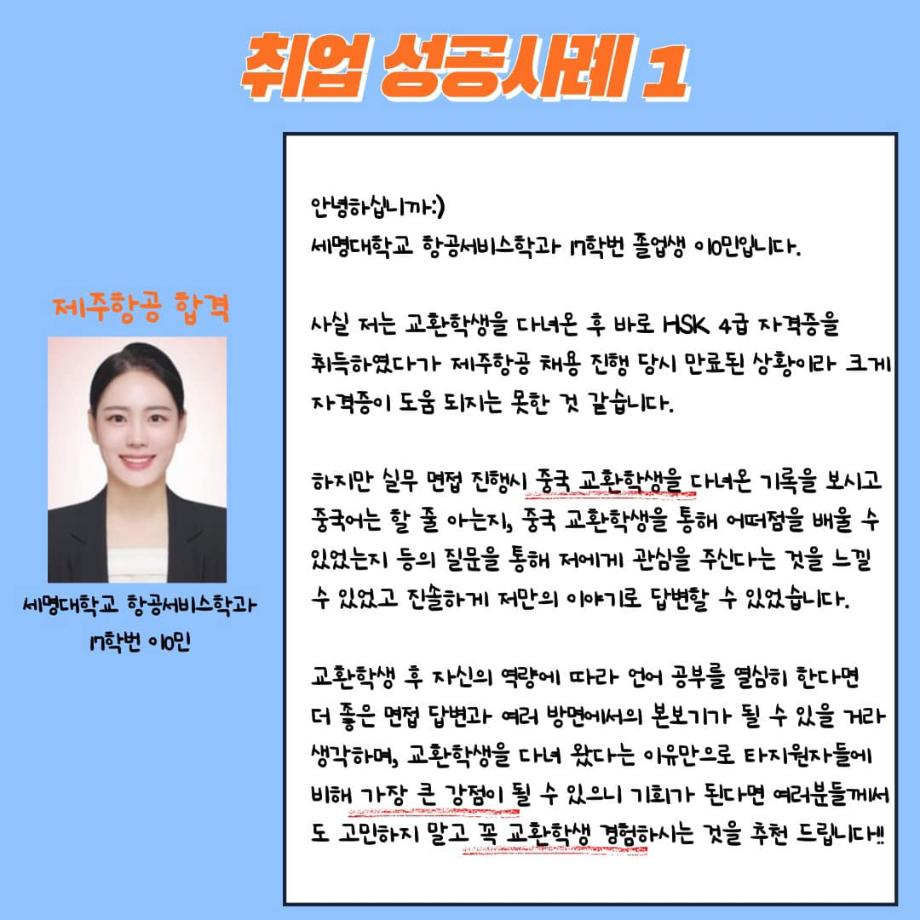 취업 성공사례 1
안녕하십니까:)
세명대학교 항공서비스학과 17학번 졸업생 이0민입니다.
사실 저는 교환학생을 다녀온 후 바로 HSK 4급 자격증을
취득하였다가 제주항공 채용 진행 당시 만료된 상황이라 크게
자격증이 도움 되지는 못한 것 같습니다.
하지만 실무 면접 진행시 중국 교환학생을 다녀온 기록을 보시고
중국어는 할 줄 아는지, 중국 교환학생을 통해 어떠점을 배울 수
있었는지 등의 질문을 통해 저에게 관심을 주신다는 것을 느낄
수 있었고 진솔하게 저만의 이야기로 답변할 수 있었습니다.
교환학생 후 자신의 역량에 따라 언어 공부를 열심히 한다면
더 좋은 면접 답변과 여러 방면에서의 본보기가 될 수 있을 거라
생각하며, 교환학생을 다녀 왔다는 이유만으로 타지원자들에
비해 가장 큰 강점이 될 수 있으니 기회가 된다면 여러분들께서
도 고민하지 말고 꼭 교환학생 경험하시는 것을 추천 드립니다!!
제주항공 합격
세명대학교 항공서비스학과
17학번 이0민